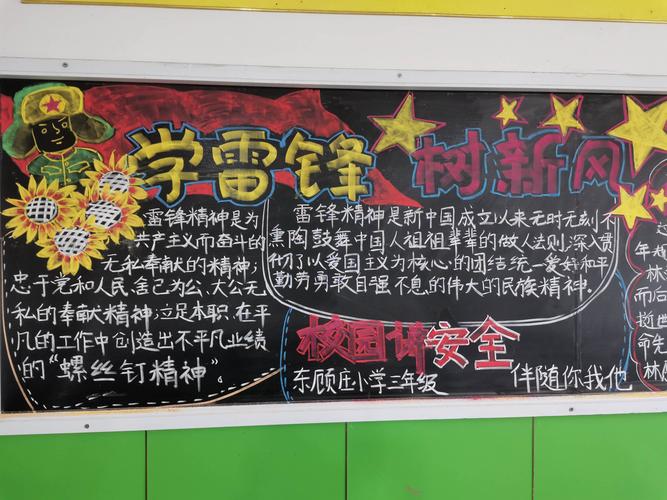 学雷锋 树新风
雷锋精神是为
共产主义而奋斗的
无私奉献的精神;
忠于党和人民,舍己为公、大公无
私的奉献精神;立足本职、在平
凡的工作中创造出不平凡业绩
的“螺丝钉精神”。
雷锋精神是新中国成立以来无时无刻不
熏陶鼓舞中国人祖祖辈辈的做人法则,深入贯
彻了以爱国主义为核心的团结统一爱好和平
勤劳勇敢自强不息的伟大的民族精神。
校园讲安全
东顾庄小学三年级
伴随你我他
年
林
而后
逝世
命先
林